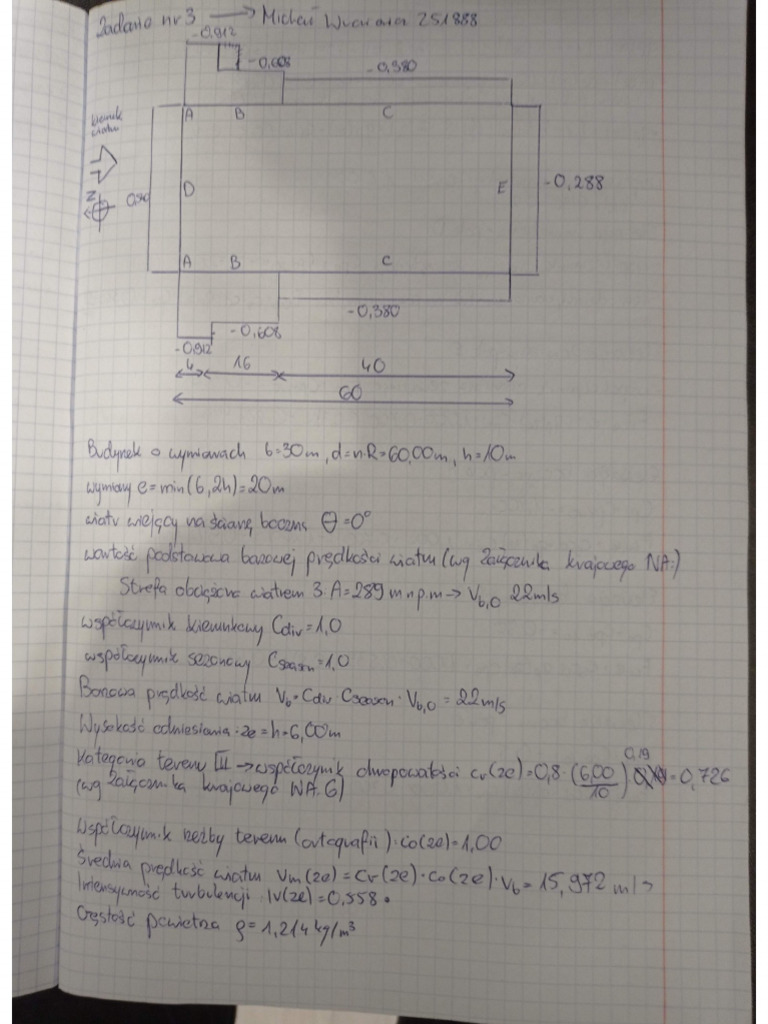 Zadanie nr 3 → Michał 251888
-0,912
-0,608
-0,380
kierunek
wiatru
A B C
N
D
E
-0,288
A B C
-0,380
-0,608
-0,912
4 16 40
60
Budynek o wymiarach b=30m, d=n·R=60,00m, h=10m
wymiary e=min(b,2h)=20m
wiatr wiejący na ścianę boczną θ=0°
wartość podstawowa bazowej prędkości wiatru (wg załącznika krajowego NA.)
Strefa obciążenia wiatrem 3. A=289 m n.p.m → Vb,0 22m/s
współczynnik kierunkowy Cdir=1,0
współczynnik sezonowy Cseason=1,0
Bazowa prędkość wiatru Vb=Cdir Cseason·Vb,0=22m/s
Wysokość odniesienia ze=h=6,00m
Kategoria terenu III → współczynnik chropowatości cr(ze)=0,8·(6,00/10) 0,19 =0,726
(wg załącznika krajowego NA.6)
Współczynnik rzeźby terenu (ortografii) co(ze)=1,00
Średnia prędkość wiatru Vm(ze)=Cr(ze)·co(ze)·Vb=15,972 m/s
Intensywność turbulencji Iv(ze)=0,558
Gęstość powietrza ρ=1,214kg/m³